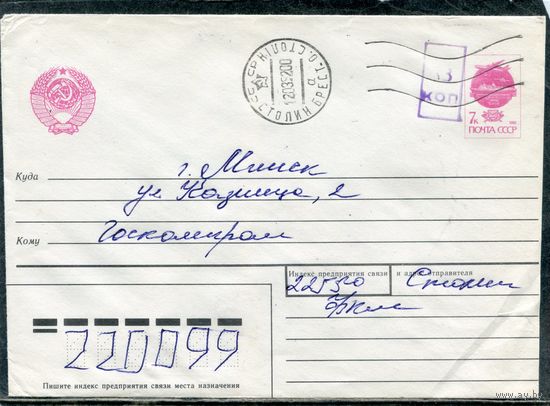 СТОЛИН БРЕСТ.О.
12039200
а
КОП
7к
ПОЧТА СССР
Куда г. Минск
ул Казинца, 2
Кому Госкомпром
Индекс предприятия связи и адрес отправителя
225510 Столин
220099
Пишите индекс предприятия связи места назначения
www.ay.by